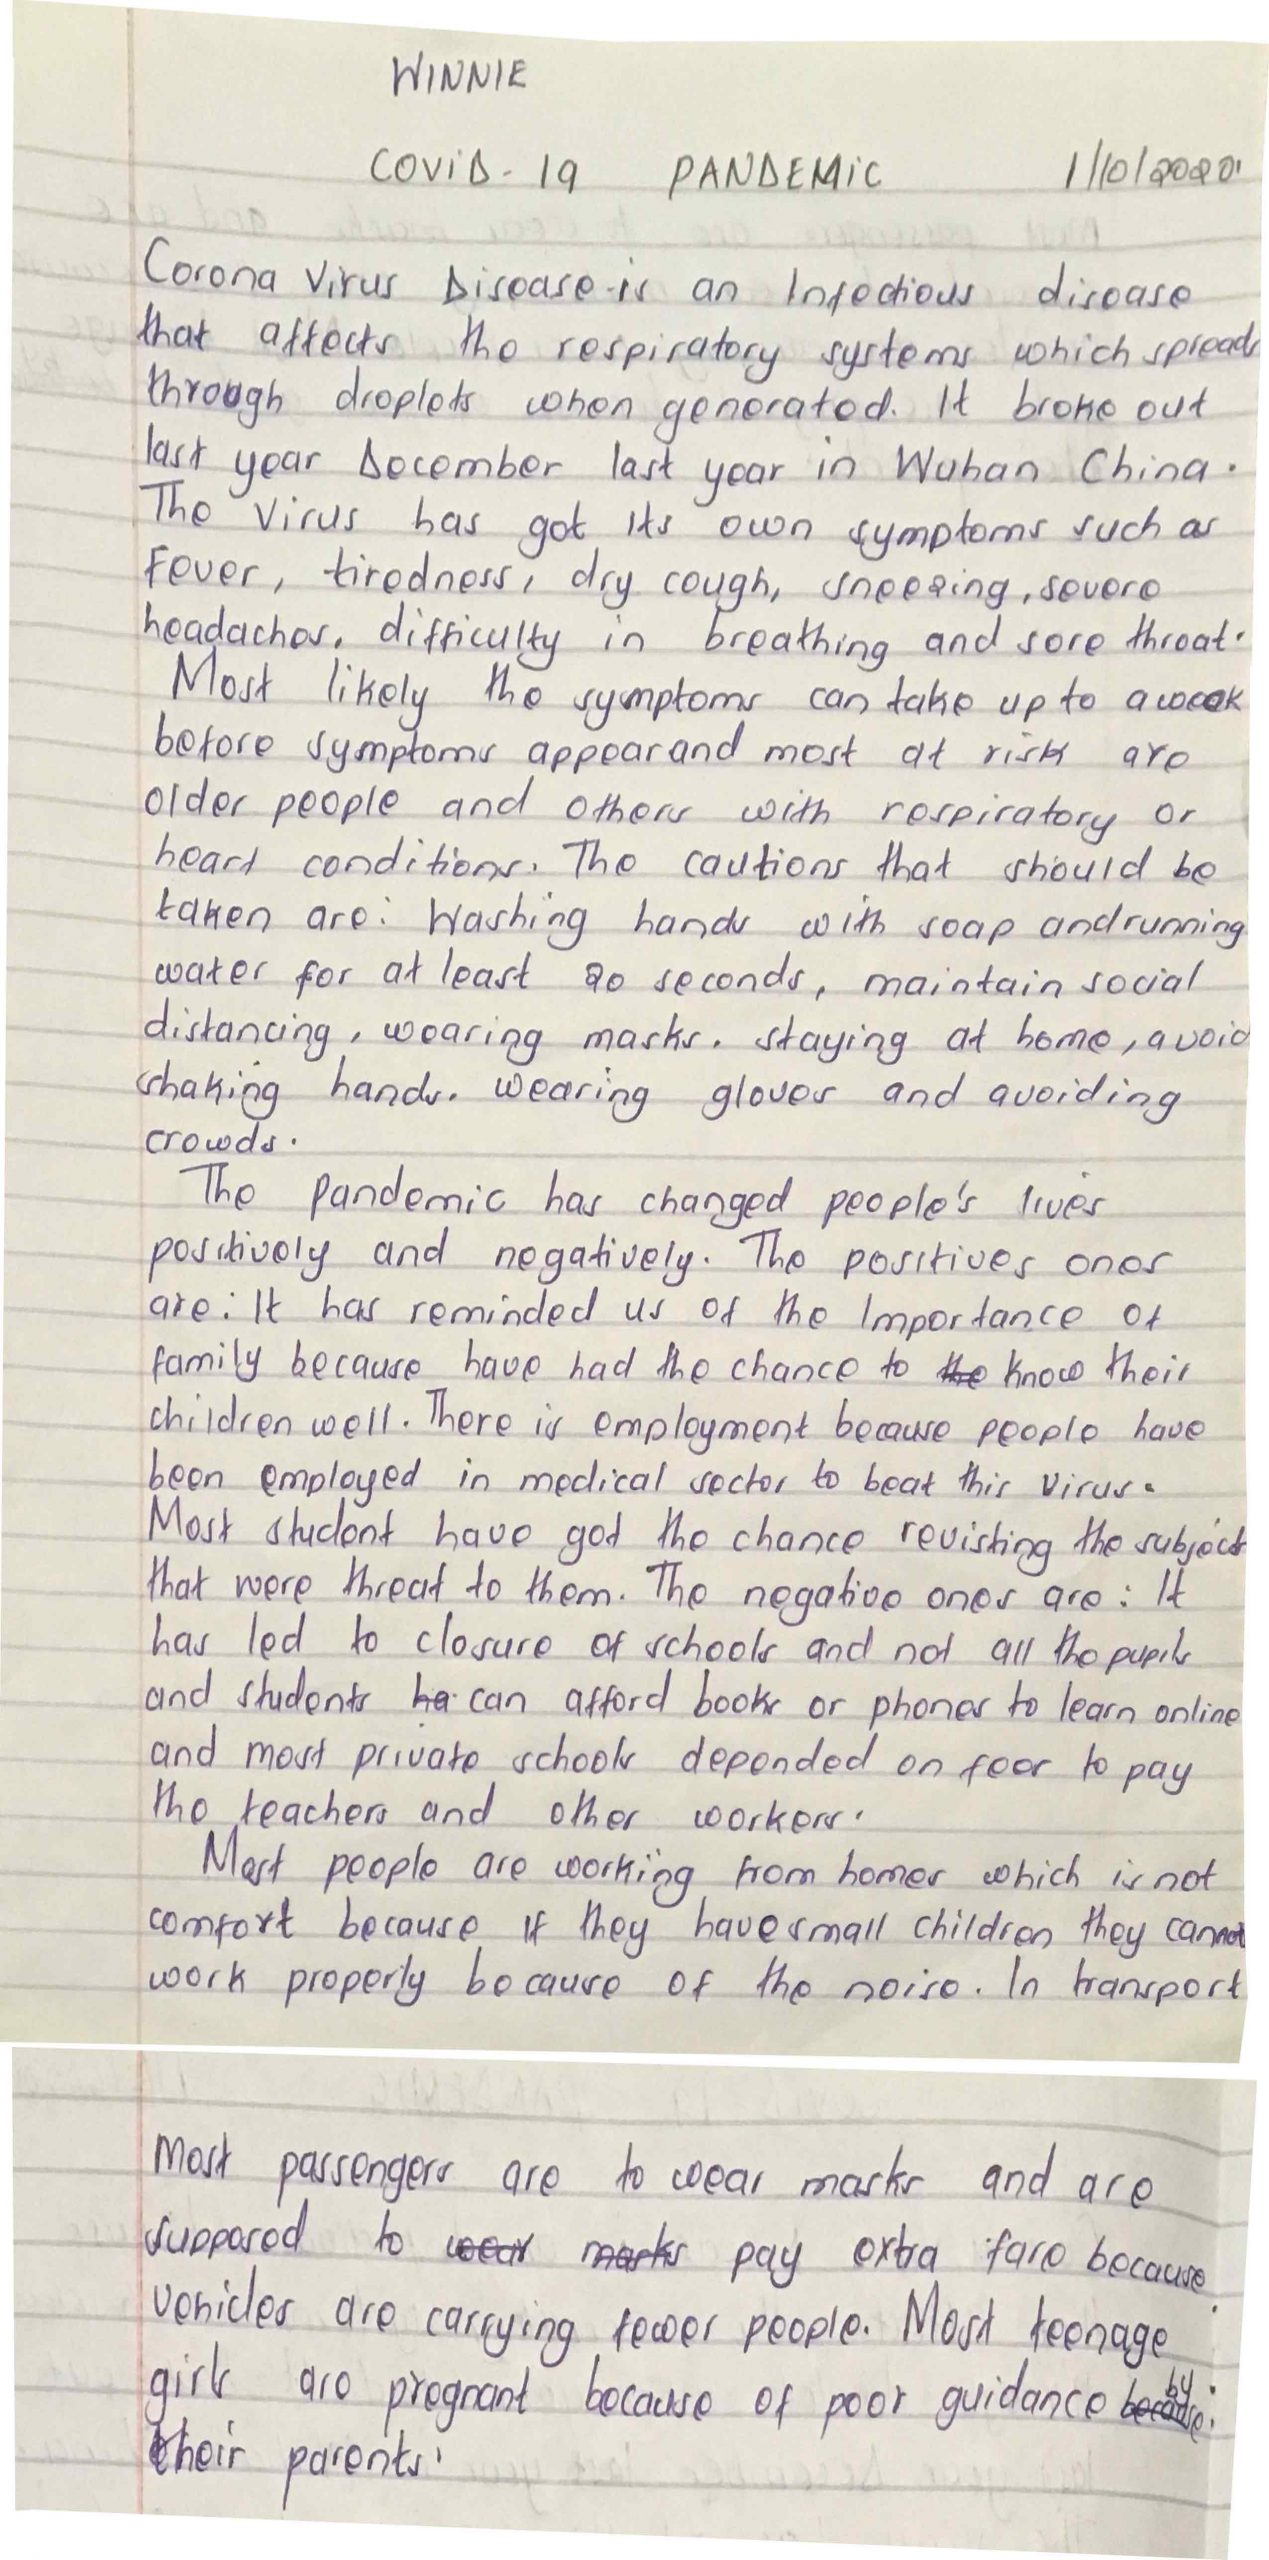 WINNIE
COVID-19 PANDEMIC 1/10/2020
Corona Virus Disease is an Infectious disease
that affects the respiratory systems which spreads
through droplets when generated. It broke out
last year December last year in Wuhan China.
The Virus has got its own symptoms such as
Fever, tiredness, dry cough, sneezing, severe
headaches, difficulty in breathing and sore throat.
Most likely the symptoms can take up to a week
before symptoms appear and most at risk are
older people and others with respiratory or
heart conditions. The cautions that should be
taken are: Washing hands with soap and running
water for at least 20 seconds, maintain social
distancing, wearing masks. staying at home, avoid
shaking hands. wearing gloves and avoiding
crowds.
The Pandemic has changed people's lives
positively and negatively. The positives ones
are: It has reminded us of the Importance of
family because have had the chance to the know their
children well. There is employment because people have
been employed in medical sector to beat this virus.
Most student have got the chance revisiting the subject
that were threat to them. The negative ones are: It
has led to closure of schools and not all the pupils
and students ha can afford books or phones to learn online
and most private schools depended on fees to pay
the teachers and other workers.
Most people are working from homes which is not
comfort because if they have small children they cannot
work properly because of the noise. In transport
Most passengers are to wear masks and are
supposed to wear masks pay extra fare because
vehicles are carrying fewer people. Most teenage
girls are pregnant because of poor guidance because by
their parents.